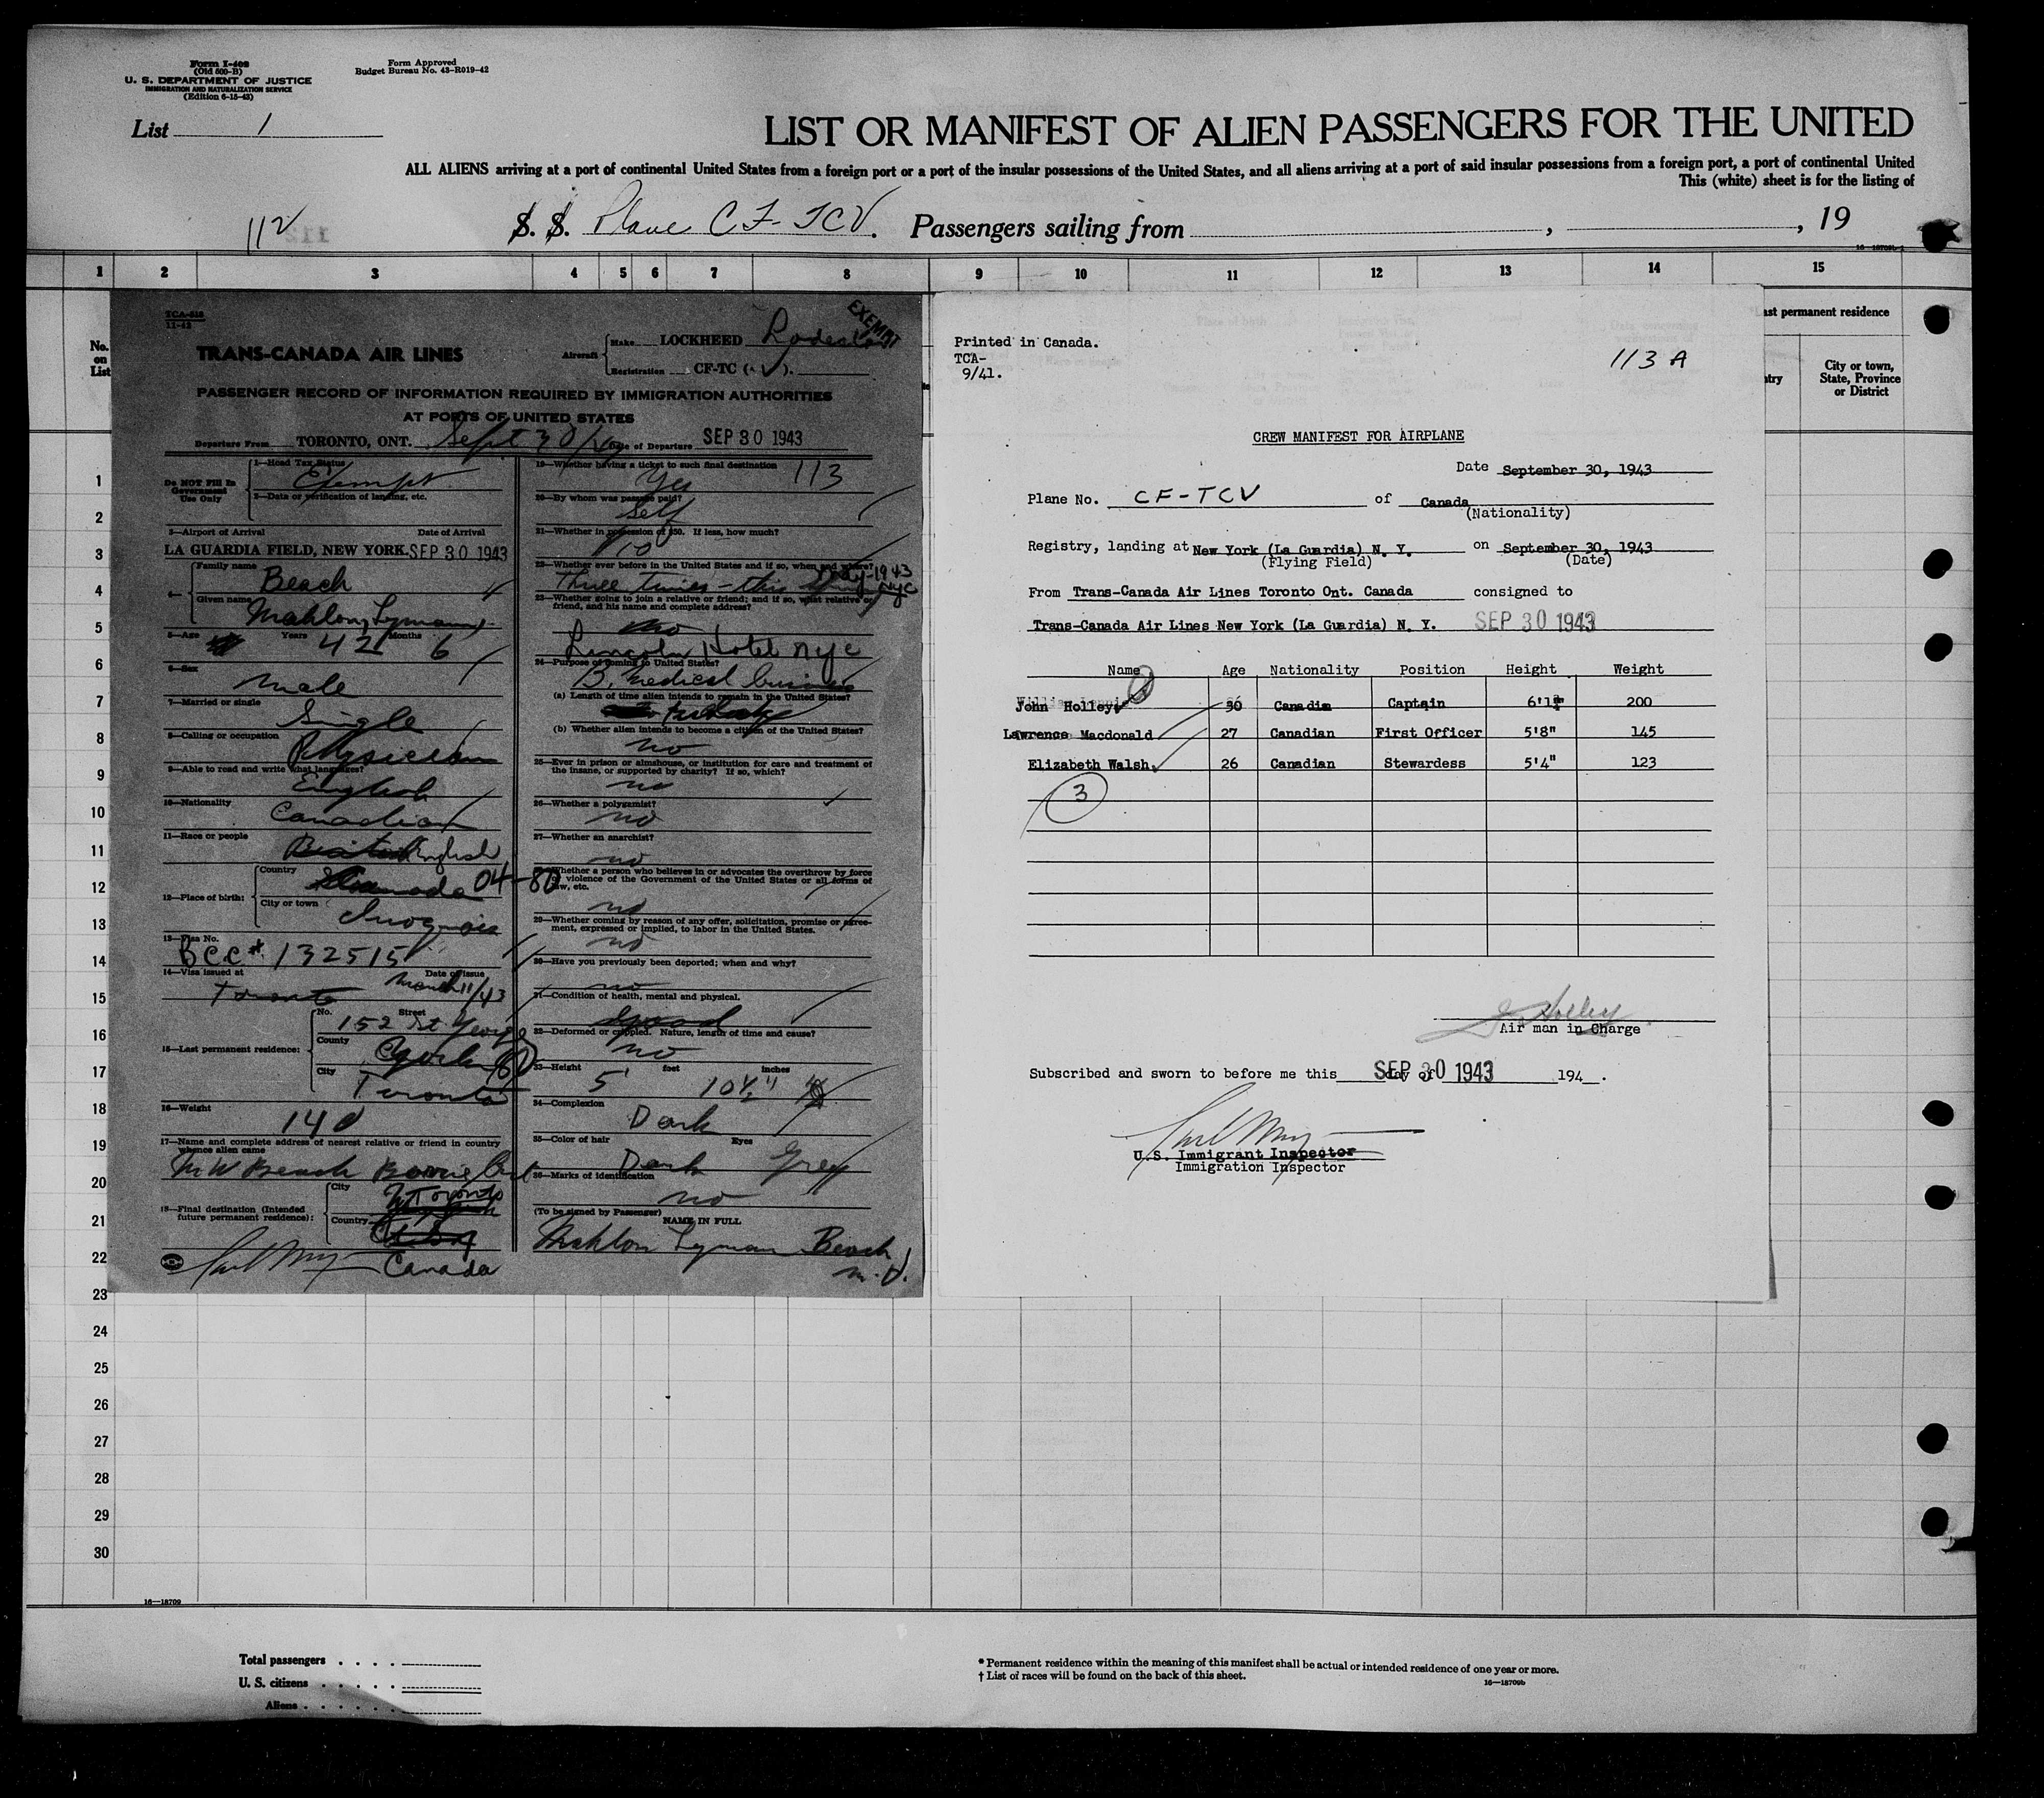 Form I-402
(Old 500-B)
U. S. DEPARTMENT OF JUSTICE
IMMIGRATION AND NATURALIZATION SERVICE
(Edition 6-15-43)
Form Approved
Budget Bureau No. 43-R019-42
List 1
LIST OR MANIFEST OF ALIEN PASSENGERS FOR THE UNITED
ALL ALIENS arriving at a port of continental United States from a foreign port or a port of the insular possessions of the United States, and all aliens arriving at a port of said insular possessions from a foreign port, a port of continental United
This (white) sheet is for the listing of
112
S. S. Plane CF-TCV. Passengers sailing from , , 19
1 2 3 4 5 6 7 8 9 10 11 12 13 14 15
No.
on
List
ast permanent residence
City or town,
State, Province
or District
11-42
EXEMPT
TRANS-CANADA AIR LINES
Aircraft
Make LOCKHEED Lodestar
Registration CF-TC (V).
PASSENGER RECORD OF INFORMATION REQUIRED BY IMMIGRATION AUTHORITIES
AT PORTS OF UNITED STATES
Departure From TORONTO, ONT. Sept 30 Date of Departure SEP 30 1943
Do NOT Fill In
Government
Use Only
1—Head Tax Status
Exempt
2—Data or verification of landing, etc.
3—Airport of Arrival Date of Arrival
LA GUARDIA FIELD, NEW YORK. SEP 30 1943
4—
Family name
Beach
Given name
Mahlon Lyman
5—Age Years 42 Months 6
6—Sex
Male
7—Married or single
Single
8—Calling or occupation
Physician
9—Able to read and write what languages?
English
10—Nationality
Canadian
11—Race or people
English
12—Place of birth:
Country
Canada 04-80
City or town
Iroquois
13—Visa No.
BCC # 132515
14—Visa issued at Date of Issue
Toronto March 11/43
15—Last permanent residence:
No. Street
152 St George
County
York
City
Toronto
16—Weight
140
17—Name and complete address of nearest relative or friend in country
whence alien came
M W Beach
18—Final destination (Intended
future permanent residence):
City
Toronto
Country
Canada
19—Whether having a ticket to such final destination 113
Yes
20—By whom was passage paid?
Self
21—Whether in possession of $50. If less, how much?
22—Whether ever before in the United States and if so, when and where?
Three times - this NYC
23—Whether going to join a relative or friend; and if so, what relative or
friend, and his name and complete address?
no
Lincoln Hotel NYC
24—Purpose of coming to United States?
B, Medical business
(a) Length of time alien intends to remain in the United States?
(b) Whether alien intends to become a citizen of the United States?
no
25—Ever in prison or almshouse, or institution for care and treatment of
the insane, or supported by charity? If so, which?
no
26—Whether a polygamist?
no
27—Whether an anarchist?
no
Whether a person who believes in or advocates the overthrow by force
or violence of the Government of the United States or all forms of
law, etc.
no
29—Whether coming by reason of any offer, solicitation, promise or agree-
ment, expressed or implied, to labor in the United States.
no
30—Have you previously been deported; when and why?
no
31—Condition of health, mental and physical.
Good
32—Deformed or crippled. Nature, length of time and cause?
no
33—Height 5' feet 10½" inches
34—Complexion
Dark
35—Color of hair Eyes
Dark Grey
36—Marks of identification
no
(To be signed by Passenger) NAME IN FULL
Mahlon Lyman Beach
M.D.
Printed in Canada.
TCA-
9/41.
113 A
CREW MANIFEST FOR AIRPLANE
Date September 30, 1943
Plane No. CF-TCV of Canada
(Nationality)
Registry, landing at New York (La Guardia) N. Y. on September 30, 1943
(Flying Field) (Date)
From Trans-Canada Air Lines Toronto Ont. Canada consigned to
Trans-Canada Air Lines New York (La Guardia) N. Y. SEP 30 1943
Name Age Nationality Position Height Weight
John Holley 30 Canadian Captain 6'1" 200
Lawrence Macdonald 27 Canadian First Officer 5'8" 145
Elizabeth Walsh 26 Canadian Stewardess 5'4" 123
3
J. Holley
Air man in Charge
Subscribed and sworn to before me this SEP 30 1943 day of 194 .
U.S. Immigrant Inspector
Immigration Inspector
1
2
3
4
5
6
7
8
9
10
11
12
13
14
15
16
17
18
19
20
21
22
23
24
25
26
27
28
29
30
16—18709
Total passengers
U. S. citizens
Aliens
* Permanent residence within the meaning of this manifest shall be actual or intended residence of one year or more.
† List of races will be found on the back of this sheet.
16—18709b